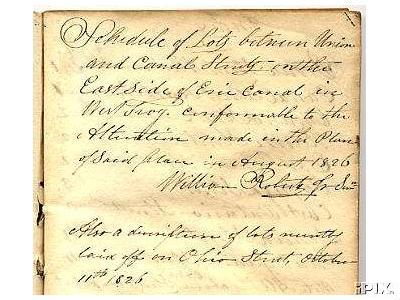 Schedule of Lots between Union
and Canal Streets on the
East Side of Erie Canal in
West Troy. conformable to the
Alteration made in the Plan
of Said place in August 1826
William Roberts Jr
Also a description of lots
laid off on Ohio Street, October
11th 1826
iPIX.